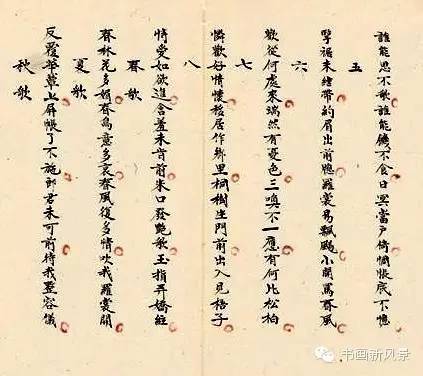 誰能思不歌誰能饑不食日冥當戶倚惆悵底不憶
五
擥裙未結帶約眉出前牕羅裳易飄颺小開罵春風
六
歡從何處來端然有憂色三喚不一應有何比松柏
七
憐歡好情懷移居作鄉里桐樹生門前出入見梧子
八
情愛如欲進含羞未肯前朱口發艷歌玉指弄嬌絃
春歌
春林花多媚春鳥意多哀春風復多情吹我羅裳開
夏歌
反覆華簟上屏帳了不施郎君未可前待我整容儀
秋歌
书画新风景